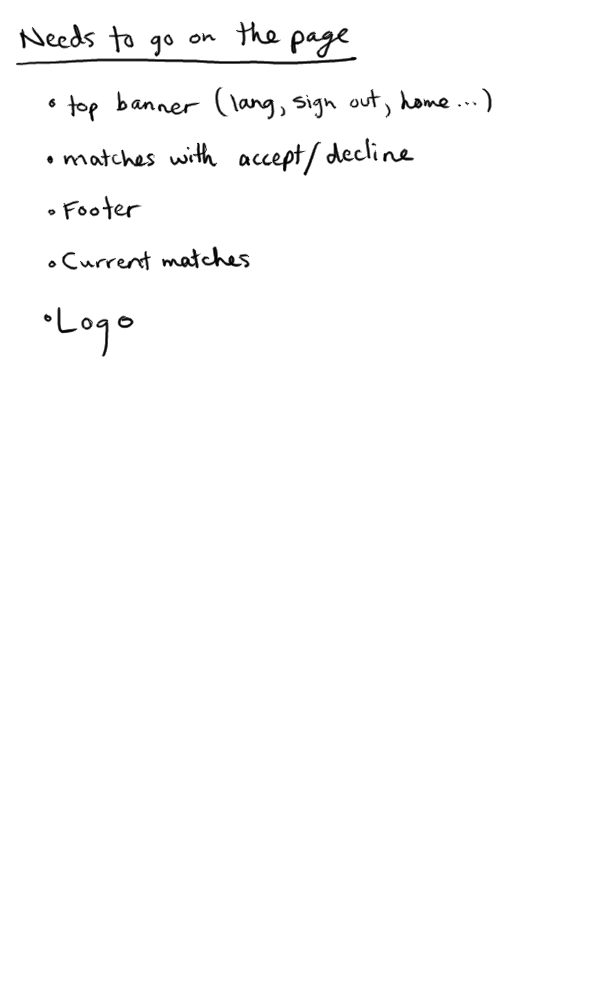 Needs to go on the page
• top banner (lang, sign out, home...)
• matches with accept/decline
• Footer
• Current matches
• Logo